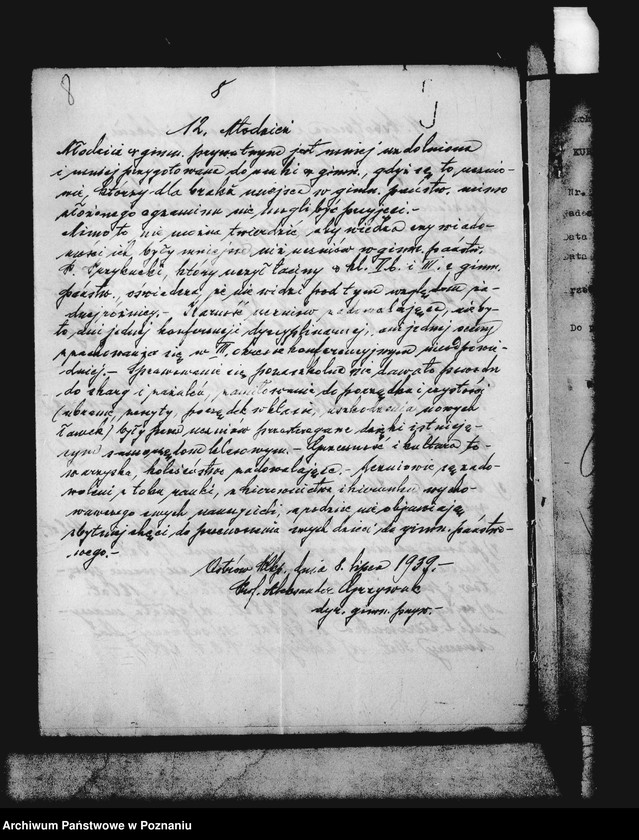 8
8
12. Młodzież
Młodzież w gimn. prywatnym jest mniej uzdolniona
i mniej przygotowana do nauki w gimn., gdyż są to ucznio-
wie, którzy dla braku miejsca w gimn. państw. mimo
złożonego egzaminu nie mogli być przyjęci.-
Mimo to nie można twierdzić, aby wiedza czy wiado-
mości ich były mniejsze niż uczniów w gimn. państw.
P. który uczył łaciny w kl. I.b. i III. a gimn.
państw., oświadcza, że nie widzi pod tym względem ża-
dnej różnicy.- Karność uczniów zadowalająca, nie by-
ło ani jednej konferencji dyscyplinarnej, ani jednej oceny
zachowania się w III okresie konferencyjnym nieodpowie-
dniej.- Sprawowanie się pozaszkolne nie dawało powodu
do skarg i zażaleń, zamiłowanie do porządku i czystości
(ubranie, zeszyty, porządek w klasie, uszkodzenia nowych
ławek) były przez uczniów przestrzegane dzięki istnieją-
cym samorządom klasowym.- Grzeczność i kultura to-
warzyska, koleżeństwo zadowalające.- Uczniowie są zado-
woleni z toku nauki, z kierownictwa i kierunku wycho-
wawczego swych nauczycieli, a rodzice nie objawiają
zbytniej chęci do przenoszenia swych dzieci do gimn. państwo-
wego.-
Ostrów Wlkp., dnia 8. lipca 1939.-
Prof. Aleksander
dyr. gimn. pryw.-
Nr.
Data
Data
Do
Archiwum Państwowe w Poznaniu